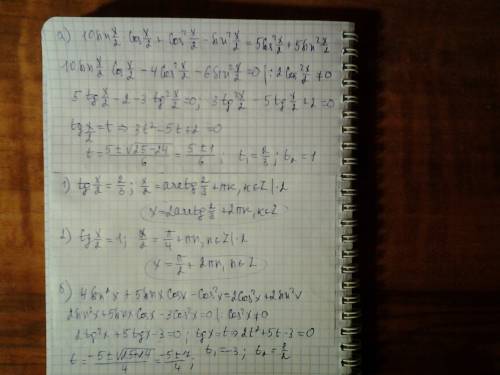 а) 10sin x/2 cos x/2 + cos² x/2 - sin² x/2 = 5cos² x/2 + 5sin² x/2
10sin x/2 cos x/2 - 4cos² x/2 - 6sin² x/2 = 0 |: 2cos² x/2 ≠ 0
5 tg x/2 - 2 - 3 tg² x/2 = 0; 3 tg² x/2 - 5 tg x/2 + 2 = 0
tg x/2 = t ⇒ 3t² - 5t + 2 = 0
t = (5 ± √(25-24))/6 = (5 ± 1)/6; t₁ = 2/3; t₂ = 1
1) tg x/2 = 2/3; x/2 = arctg 2/3 + πк, к∈Z |·2
x = 2arctg 2/3 + 2πк, к∈Z
2) tg x/2 = 1; x/2 = π/4 + πn, n∈Z |·2
x = π/2 + 2πn, n∈Z
б) 4sin²x + 5sinx cosx - cos²x = 2cos²x + 2sin²x
2sin²x + 5sinx cosx - 3cos²x = 0 |: cos²x ≠ 0
2tg²x + 5tgx - 3 = 0; tgx = t ⇒ 2t² + 5t - 3 = 0
t₁ = -3; t₂ =